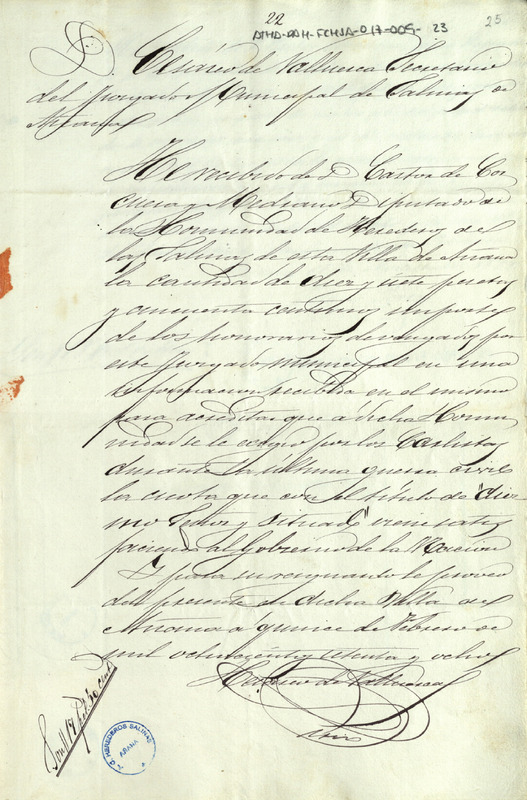 22
ATHA-DAH-FCHSA-017-005-23
25
D. Cesáreo de Valluerca Secretario
del Juzgado Municipal de Salinas de
Añana
He recibido de D Castor de Cor
cuera y Medrano Diputado de
la Comunidad de Herederos de
las Salinas de esta Villa de Añana
la cantidad de diez y siete pesetas
y cincuenta centimos importe
de los honorarios devengados por
este Juzgado municipal en una
informacion recibida en el mismo
para acreditar que a dicha Comu
nidad se le cargo por los Carlistas
durante la última guerra civil
la cuota que con el título de "diez
mo Tejos y Situado" venia satis
faciendo al Gobierno de la Nacion
Y para su resguardo le proveo
del presente en dicha Villa de
Añana a quince de Febrero de
mil ochocientos setenta y ocho
Cesáreo de Valluerca
Srio
Son 17 pts 50 cents
G. HEREDEROS SALINAS
AÑANA